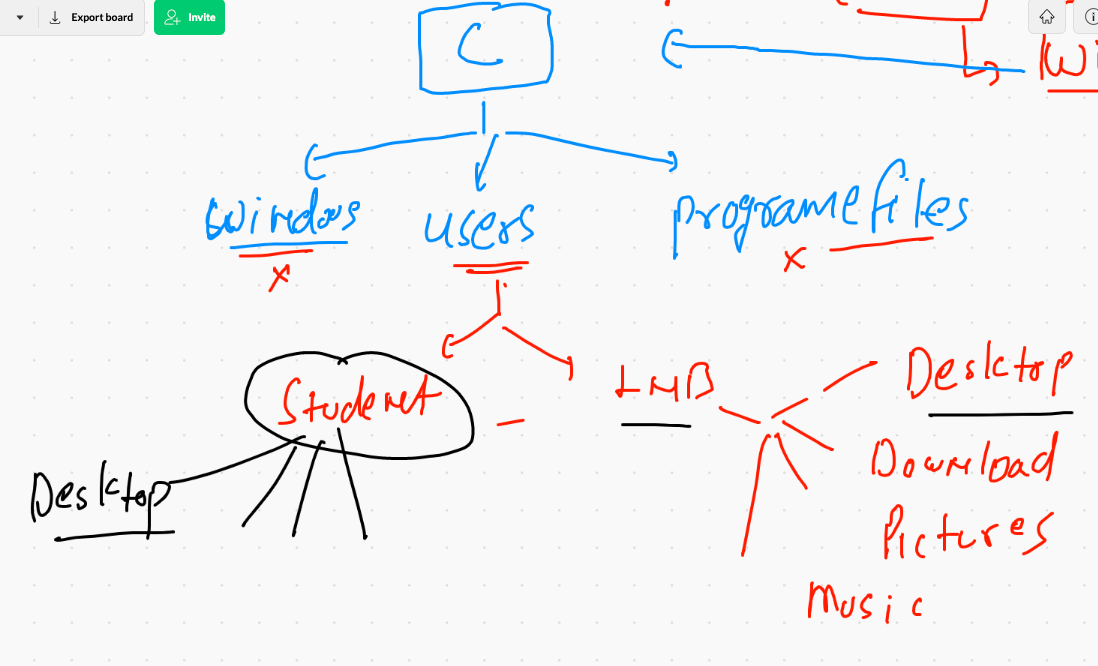 Export board
Invite
C
Wi
windows
users
programe files
x
x
Student
LMB
Desktop
Desktop
Download
Pictures
Music